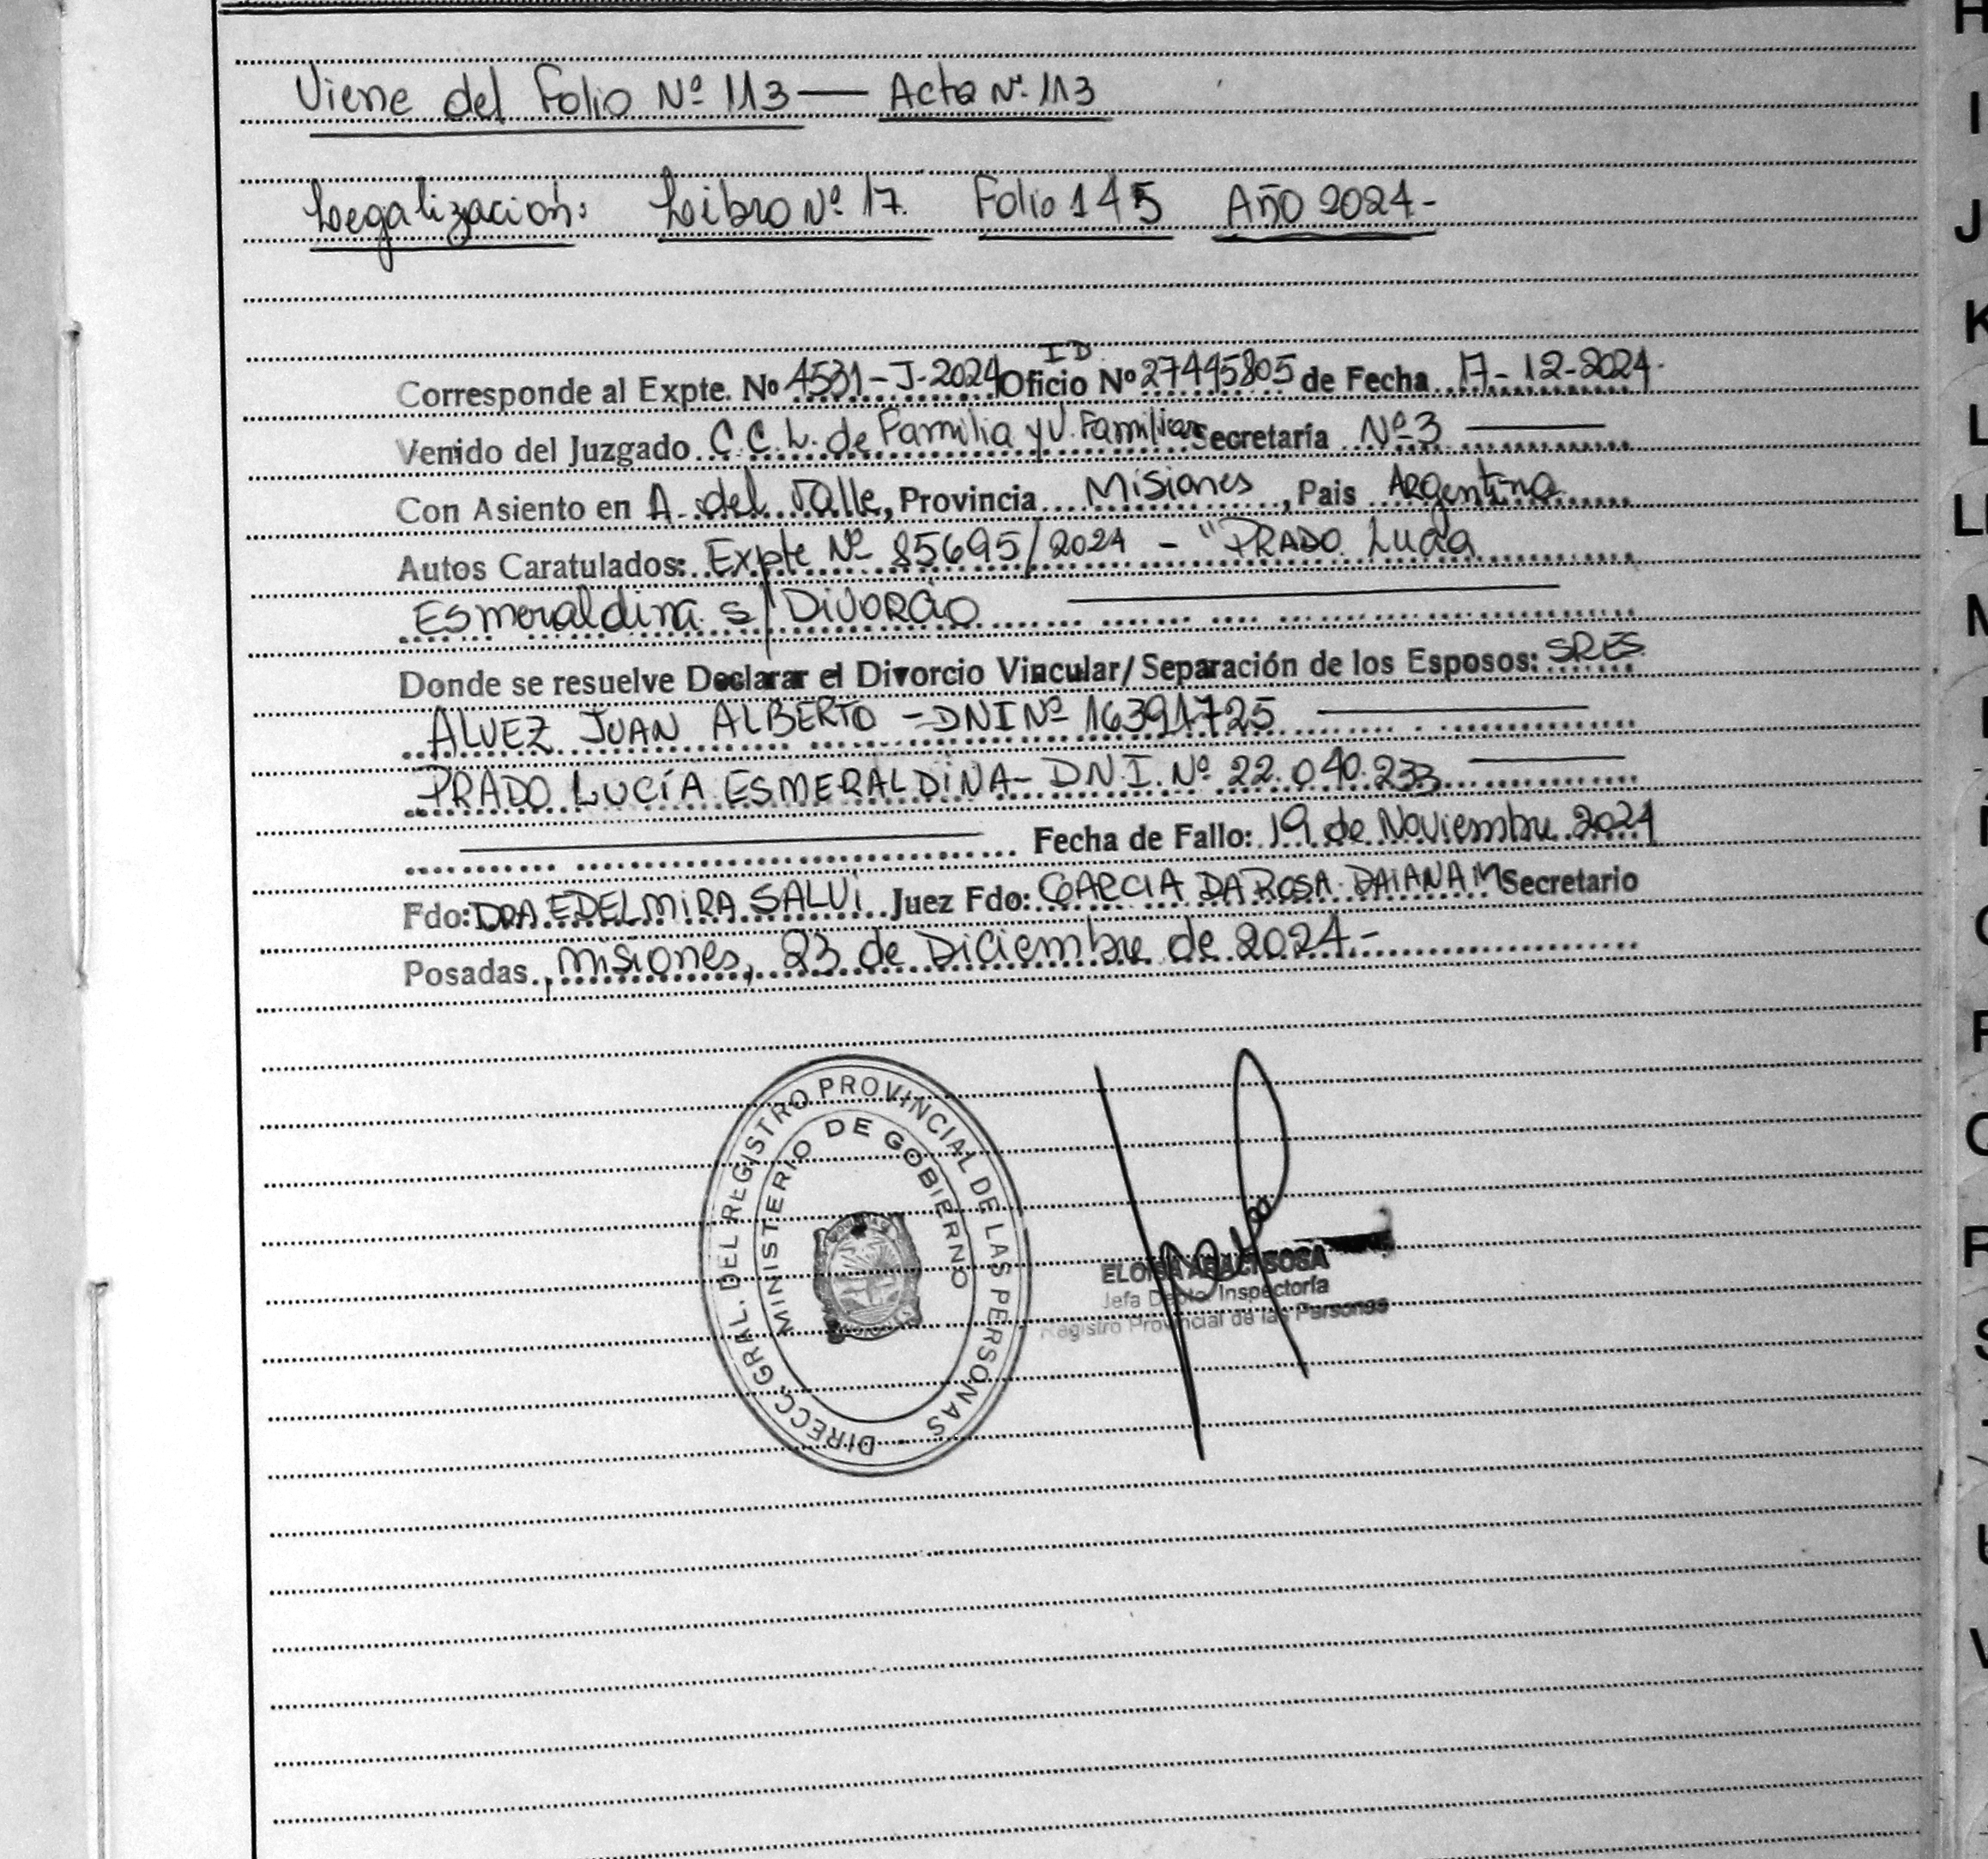 Viene del Folio Nº 113 — Acta Nº 113
Legalización: Libro Nº 17. Folio 145 Año 2024-
ID
Corresponde al Expte. Nº 4531-J-2024 Oficio Nº 27445805 de Fecha 17-12-2024.
Venido del Juzgado C.C.L. de Familia y V. Familiar Secretaría Nº 3
Con Asiento en A. del Valle, Provincia Misiones, Pais Argentina
Autos Caratulados: Expte Nº 85695/2024 - "PRADO Lucia
Esmeraldina s/ DIVORCIO
Donde se resuelve Declarar el Divorcio Vincular/Separación de los Esposos: SRES
ALVEZ JUAN ALBERTO - DNI Nº 16391725
PRADO LUCÍA ESMERALDINA - D.N.I. Nº 22.040.233
Fecha de Fallo: 19 de Noviembre 2024
Fdo: DRA EDELMIRA SALVI Juez Fdo: GARCIA DA ROSA DAIANA M Secretario
Posadas, Misiones, 23 de Diciembre de 2024.-
DIRECC. GRAL. DEL REGISTRO PROVINCIAL DE LAS PERSONAS
MINISTERIO DE GOBIERNO
ELOISA ARACI SOSA
Jefa Depto. Inspectoría
Registro Provincial de las Personas
H
I
J
K
L
M